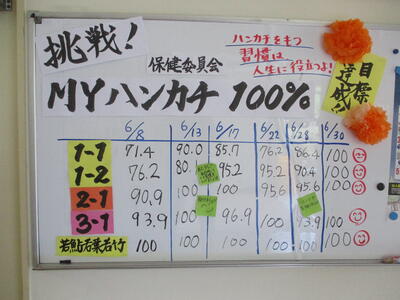 挑戦!
保健委員会
ハンカチをもつ
習慣は
人生に役立つよ!
目標
達成!!
MYハンカチ 100%
6/8 6/13 6/17 6/22 6/28 6/30
1-1 71.4 90.0 85.7 76.2 86.4 100
1-2 76.2 80. 95.2 95.2 90.4 100
2-1 90.9 100 100 95.6 95.6 100
3-1 93.9 100 96.9 100 93.9 100
若鮎若葉若竹 100 100 100 100 100 100